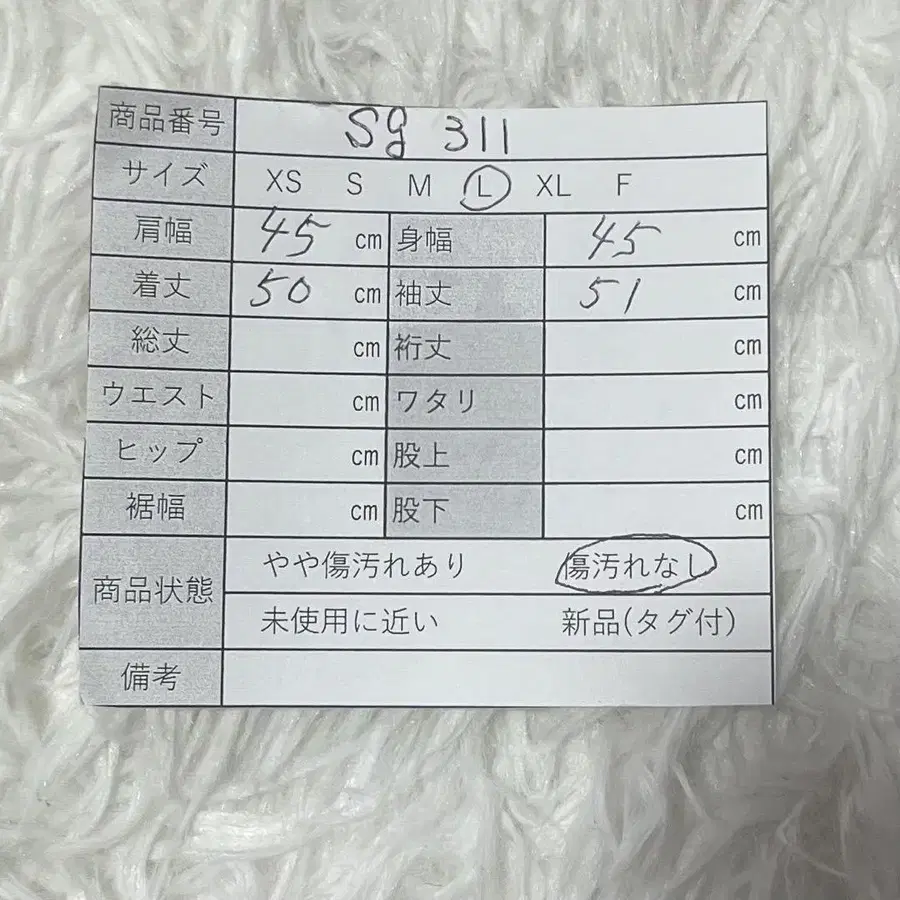 商品番号 Sg 311
サイズ XS S M L XL F
肩幅 45 cm 身幅 45 cm
着丈 50 cm 袖丈 51 cm
総丈 cm 裄丈 cm
ウエスト cm ワタリ cm
ヒップ cm 股上 cm
裾幅 cm 股下 cm
商品状態 やや傷汚れあり 傷汚れなし
未使用に近い 新品(タグ付)
備考